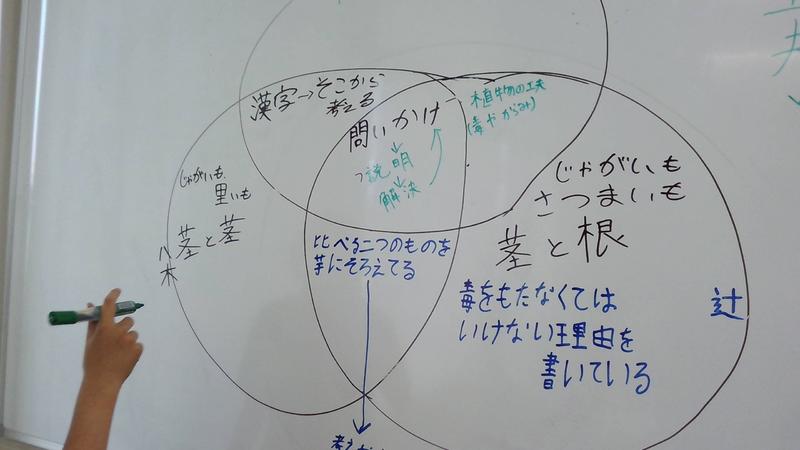 漢字→そこから
考える
問いかけ
↓
説明
↓
解決
植物の工夫
(毒やからみ)
じゃがいも
里いも
茎と茎
八木
比べる二つのものを
芋にそろえてる
じゃがいも
さつまいも
茎と根
毒をもたなくては
いけない理由を
書いている
辻